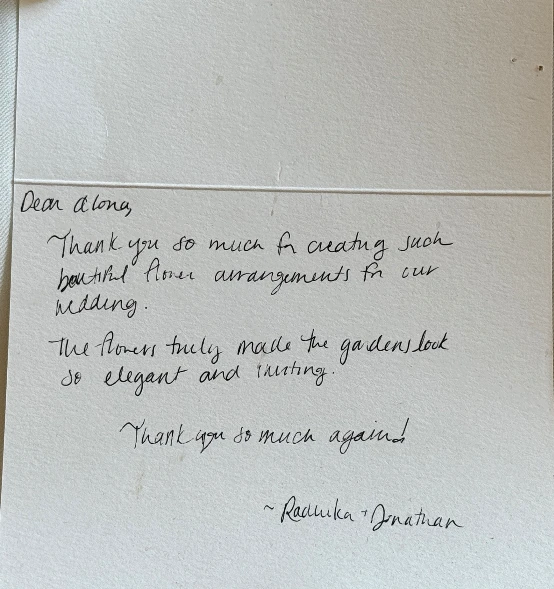 Dear Alona,
Thank you so much for creating such
beautiful flower arrangements for our
wedding.
The flowers truly made the gardens look
so elegant and inviting.
Thank you so much again!
~ Radhika + Jonathan